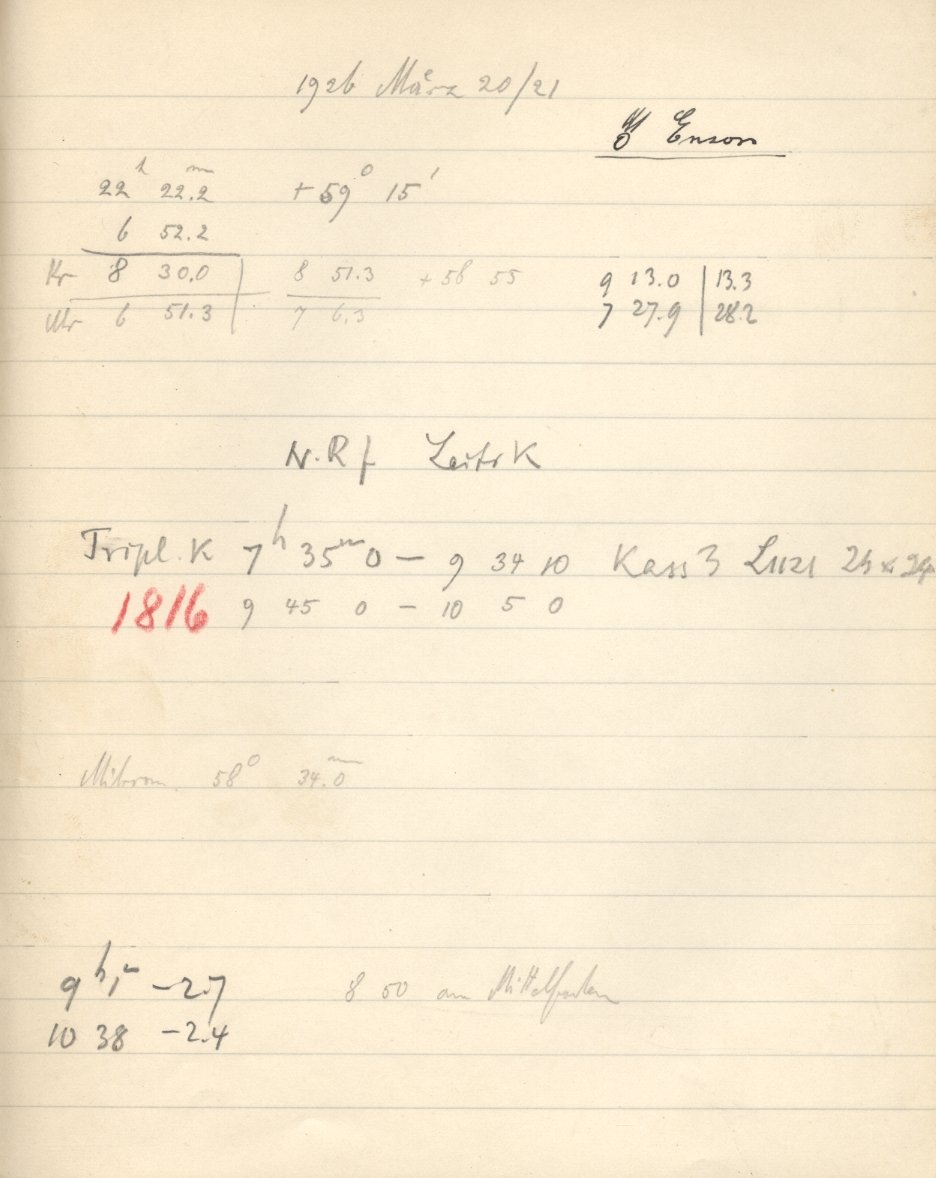 1926 März 20/21
☄ Ensor
22ʰ 22.2ᵐ + 59° 15'
6 52.2
Kr 8 30.0 8 51.3 + 58 55 9 13.0 | 13.3
Mr 6 51.3 7 6.3 7 27.9 | 28.2
N. Rf LeitrK
Tripl. K 7ʰ 35ᵐ 0 — 9 34 10 Kass 3 24 x 24
1816 9 45 0 — 10 5 0
58° 34.0ᵐ
9ʰ 1ᵐ −2.7 8 50 am Mittelfaden
10 38 −2.4